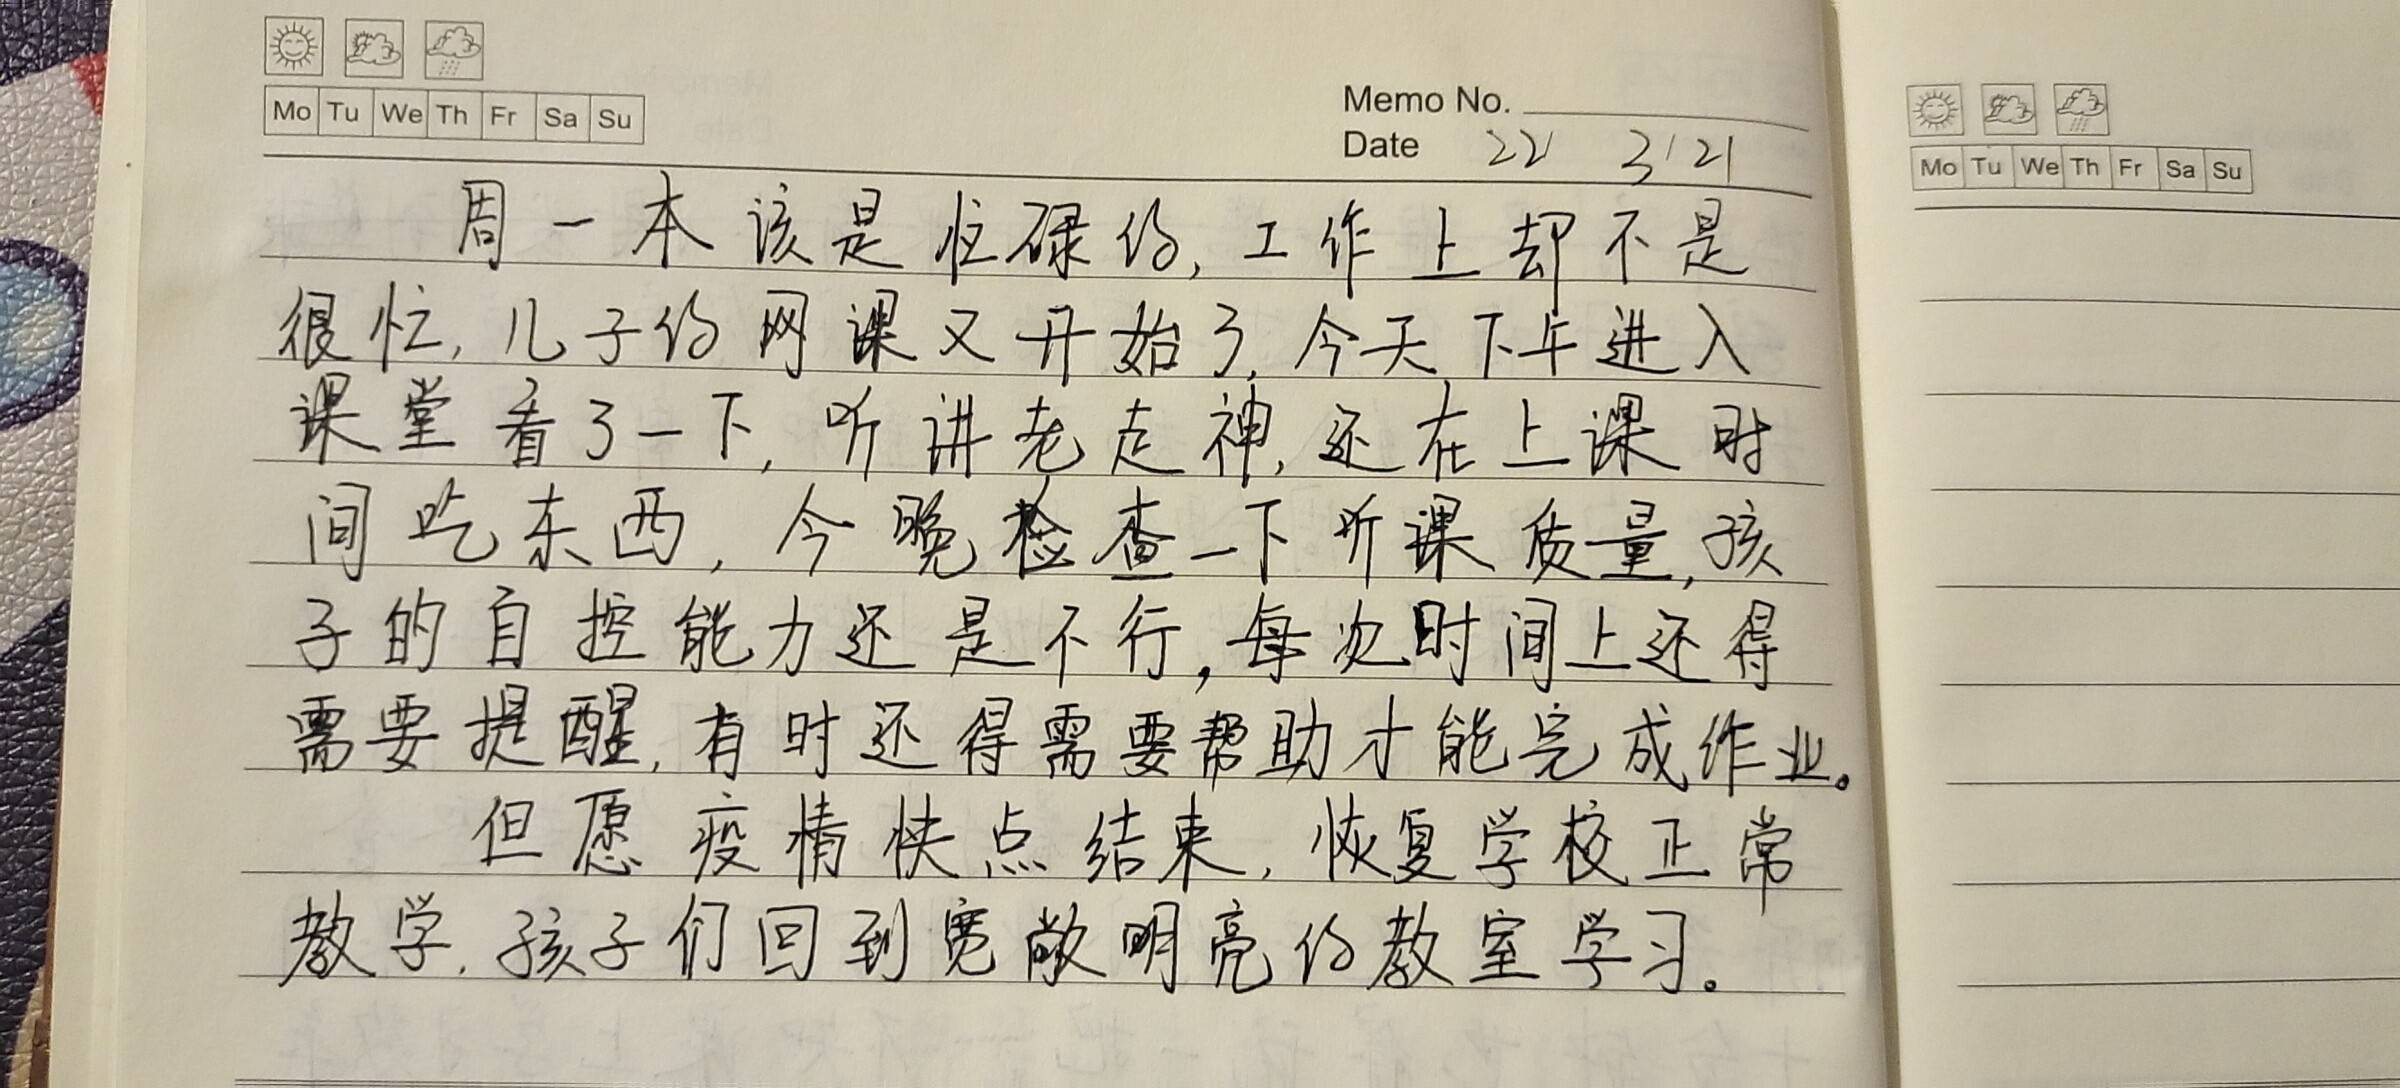 Mo Tu We Th Fr Sa Su
Memo No.
Date 22 3 21
周一本该是忙碌的,工作上却不是
很忙,儿子的网课又开始了,今天下午进入
课堂看了一下,听讲老走神,还在上课时
间吃东西,今晚检查一下听课质量,孩
子的自控能力还是不行,每次时间上还得
需要提醒,有时还得需要帮助才能完成作业。
但愿疫情快点结束,恢复学校正常
教学,孩子们回到宽敞明亮的教室学习。
Mo Tu We Th Fr Sa Su